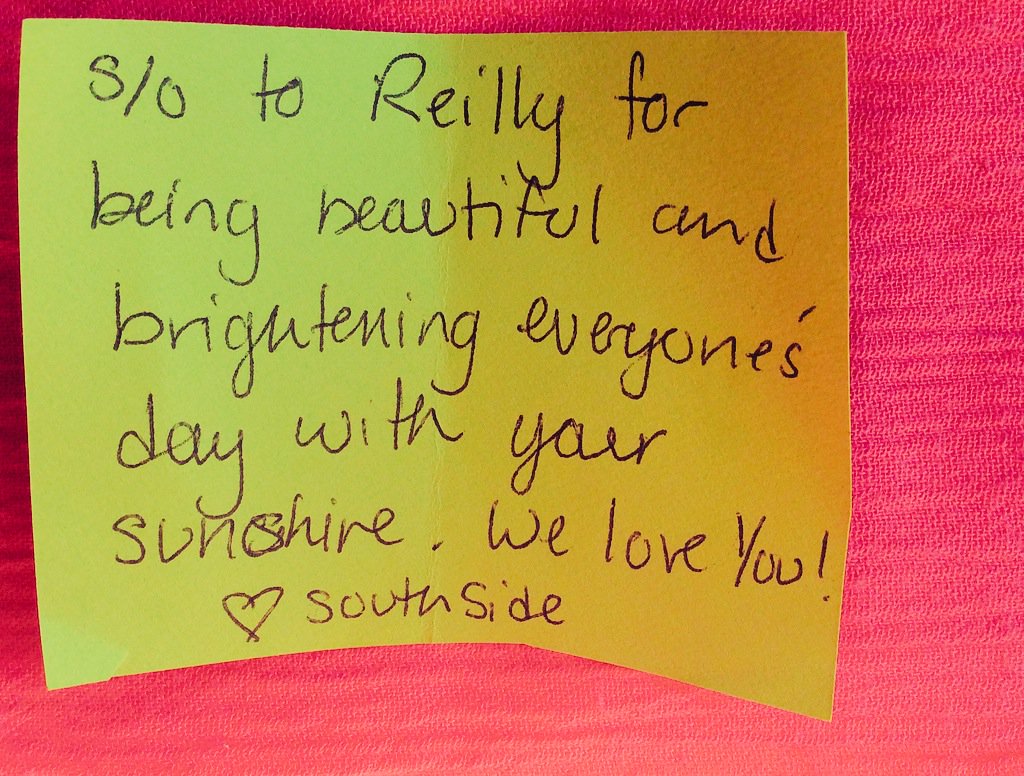 s/o to Reilly for
being beautiful and
brightening everyone's
day with your
sunshine. We love you!
♡ southside